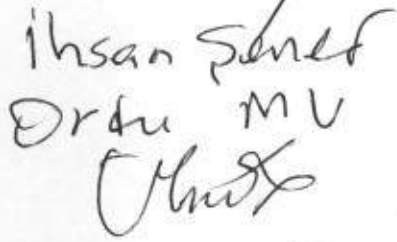 İhsan Şener
Ordu MV